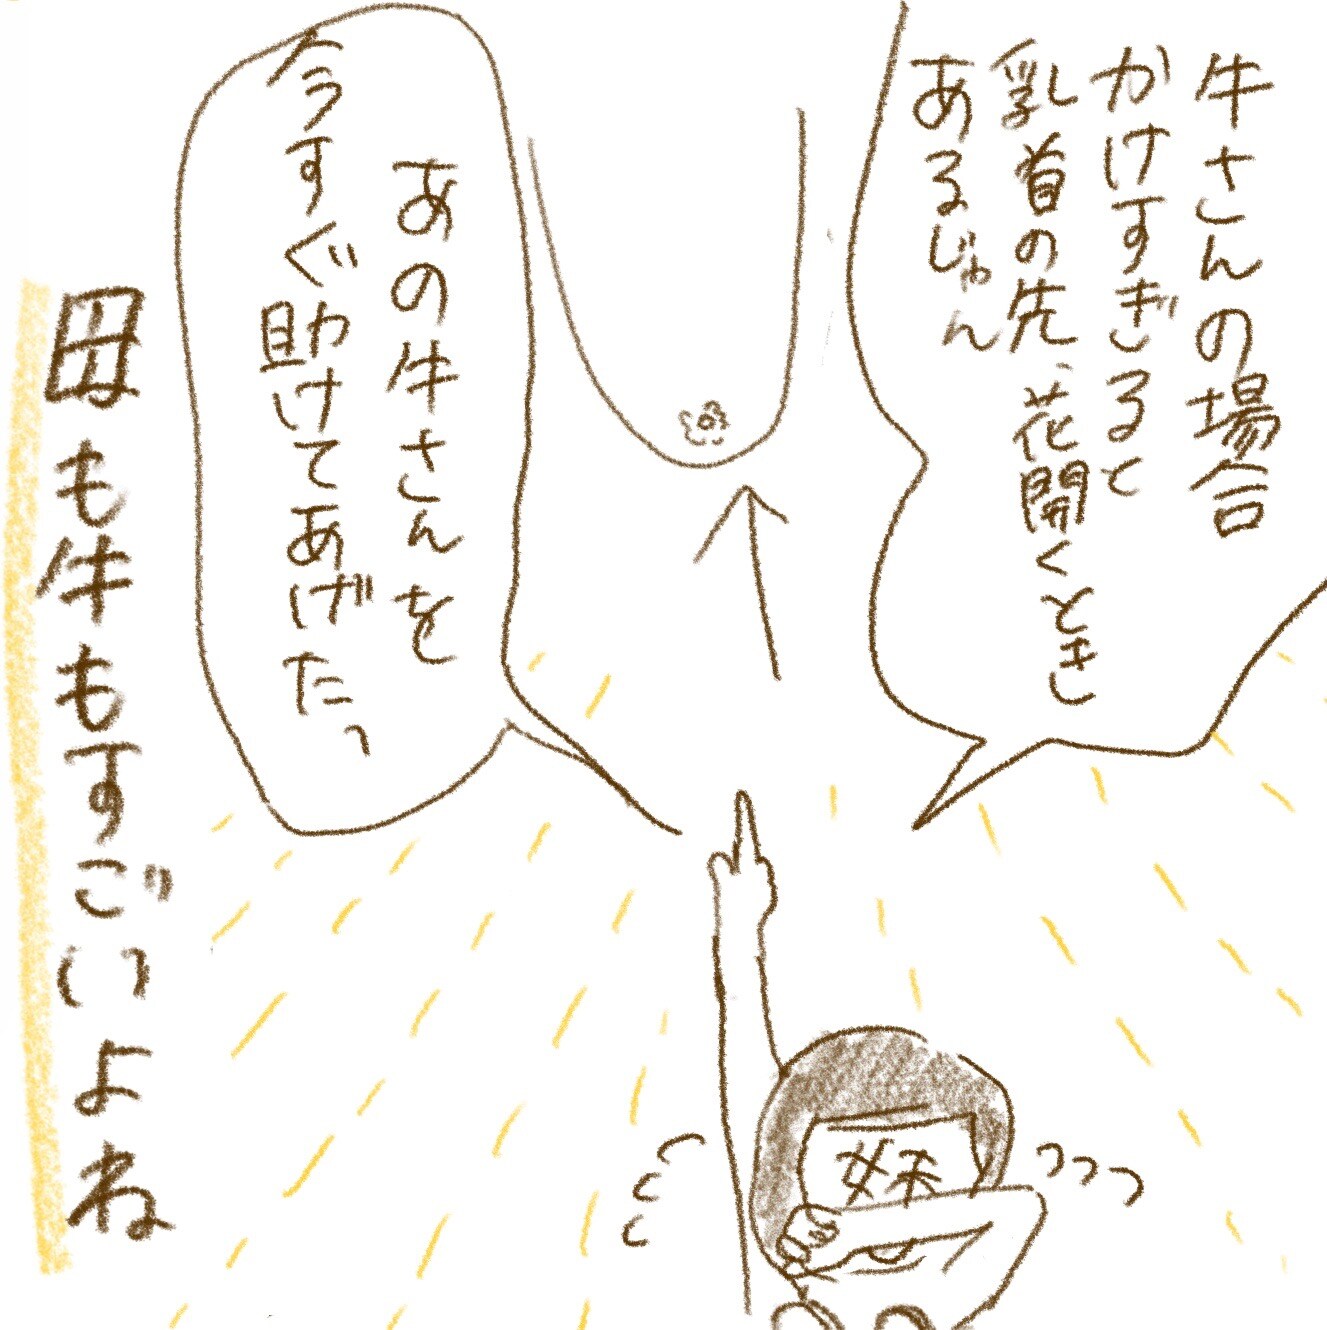 牛さんの場合
かけすぎると
乳首の先、花開くとき
あるじゃん
あの牛さんを
今すぐ助けてあげたっ
妹
母も牛もすごいよね